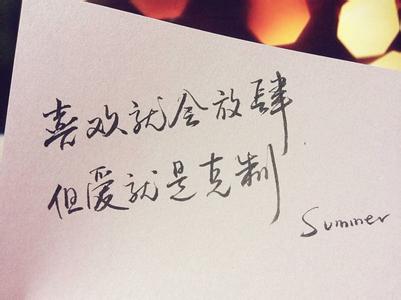 喜欢就会放肆
但爱就是克制
Summer